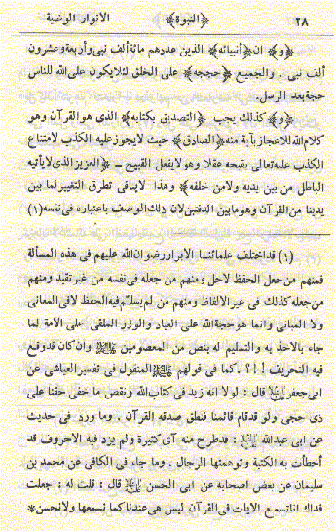 ٢٨ ﴿النبوة﴾ الأنوار الوضية
﴿و﴾ ان ﴿أنبيائه﴾ الذين عددهم مائة ألف نبي وأربعة وعشرون
ألف نبي . والجميع ﴿حججه﴾ على الخلق لئلا يكون على الله للناس
حجة بعد الرسل .
﴿و﴾ كذلك يجب ﴿التصديق بكتابه﴾ الذي هو القرآن وهو
كلام الله للاعجاز بآية منه ﴿الصادق﴾ حيث لا يجوز عليه الكذب لامتناع
الكذب عليه تعالى بقبحه عقلا وهو لا يفعل القبيح – ﴿العزيز الذي لا يأتيه
الباطل من بين يديه ولا من خلفه﴾ وهذا لا ينفى تطرق التغيير لما بين
يدينا من القرآن وهو ما بين الدفتين لان ذلك الوصف باعتباره في نفسه (١)
(١) قد اختلف علمائنا الأبرار رضوان الله عليهم في هذه المسألة
فمنهم من جعل الحفظ لاحل ومنهم من جعله في نفسه من غير تقيد ومنهم
من جعله كذلك في غير الالفاظ ومنهم من لم يسلم فيه الحفظ لا في المعاني
ولا المباني وانما هو حجة الله على العباد والوزر الملقى على الأمة لما
جاء بالاخذ به والتسليم له بنص من المعصومين وان كان قد وقع
فيه التحريف ! ! ؟ . كما في قولهم المنقول في تفسير العياشي عن
ابي جعفر قال : لولا انه زيد في كتاب الله ونقص ما خفى حقنا على
ذي حجى ولو قد قام قائمنا فنطق صدقه القرآن . وما ورد في حديث
عن ابي عبدالله : قد طرح منه آي كثيرة ولم يزد فيه الا حروف قد
أخطأت به الكتبة وتوهمتها الرجال . وما جاء في الكافي عن محمد بن
سليمان عن بعض اصحابه عن ابي الحسن قال : قلت له : جعلت
فداك انا نسمع الآيات في القرآن ليس هي عندنا كما نسمعها ولا نحسن*